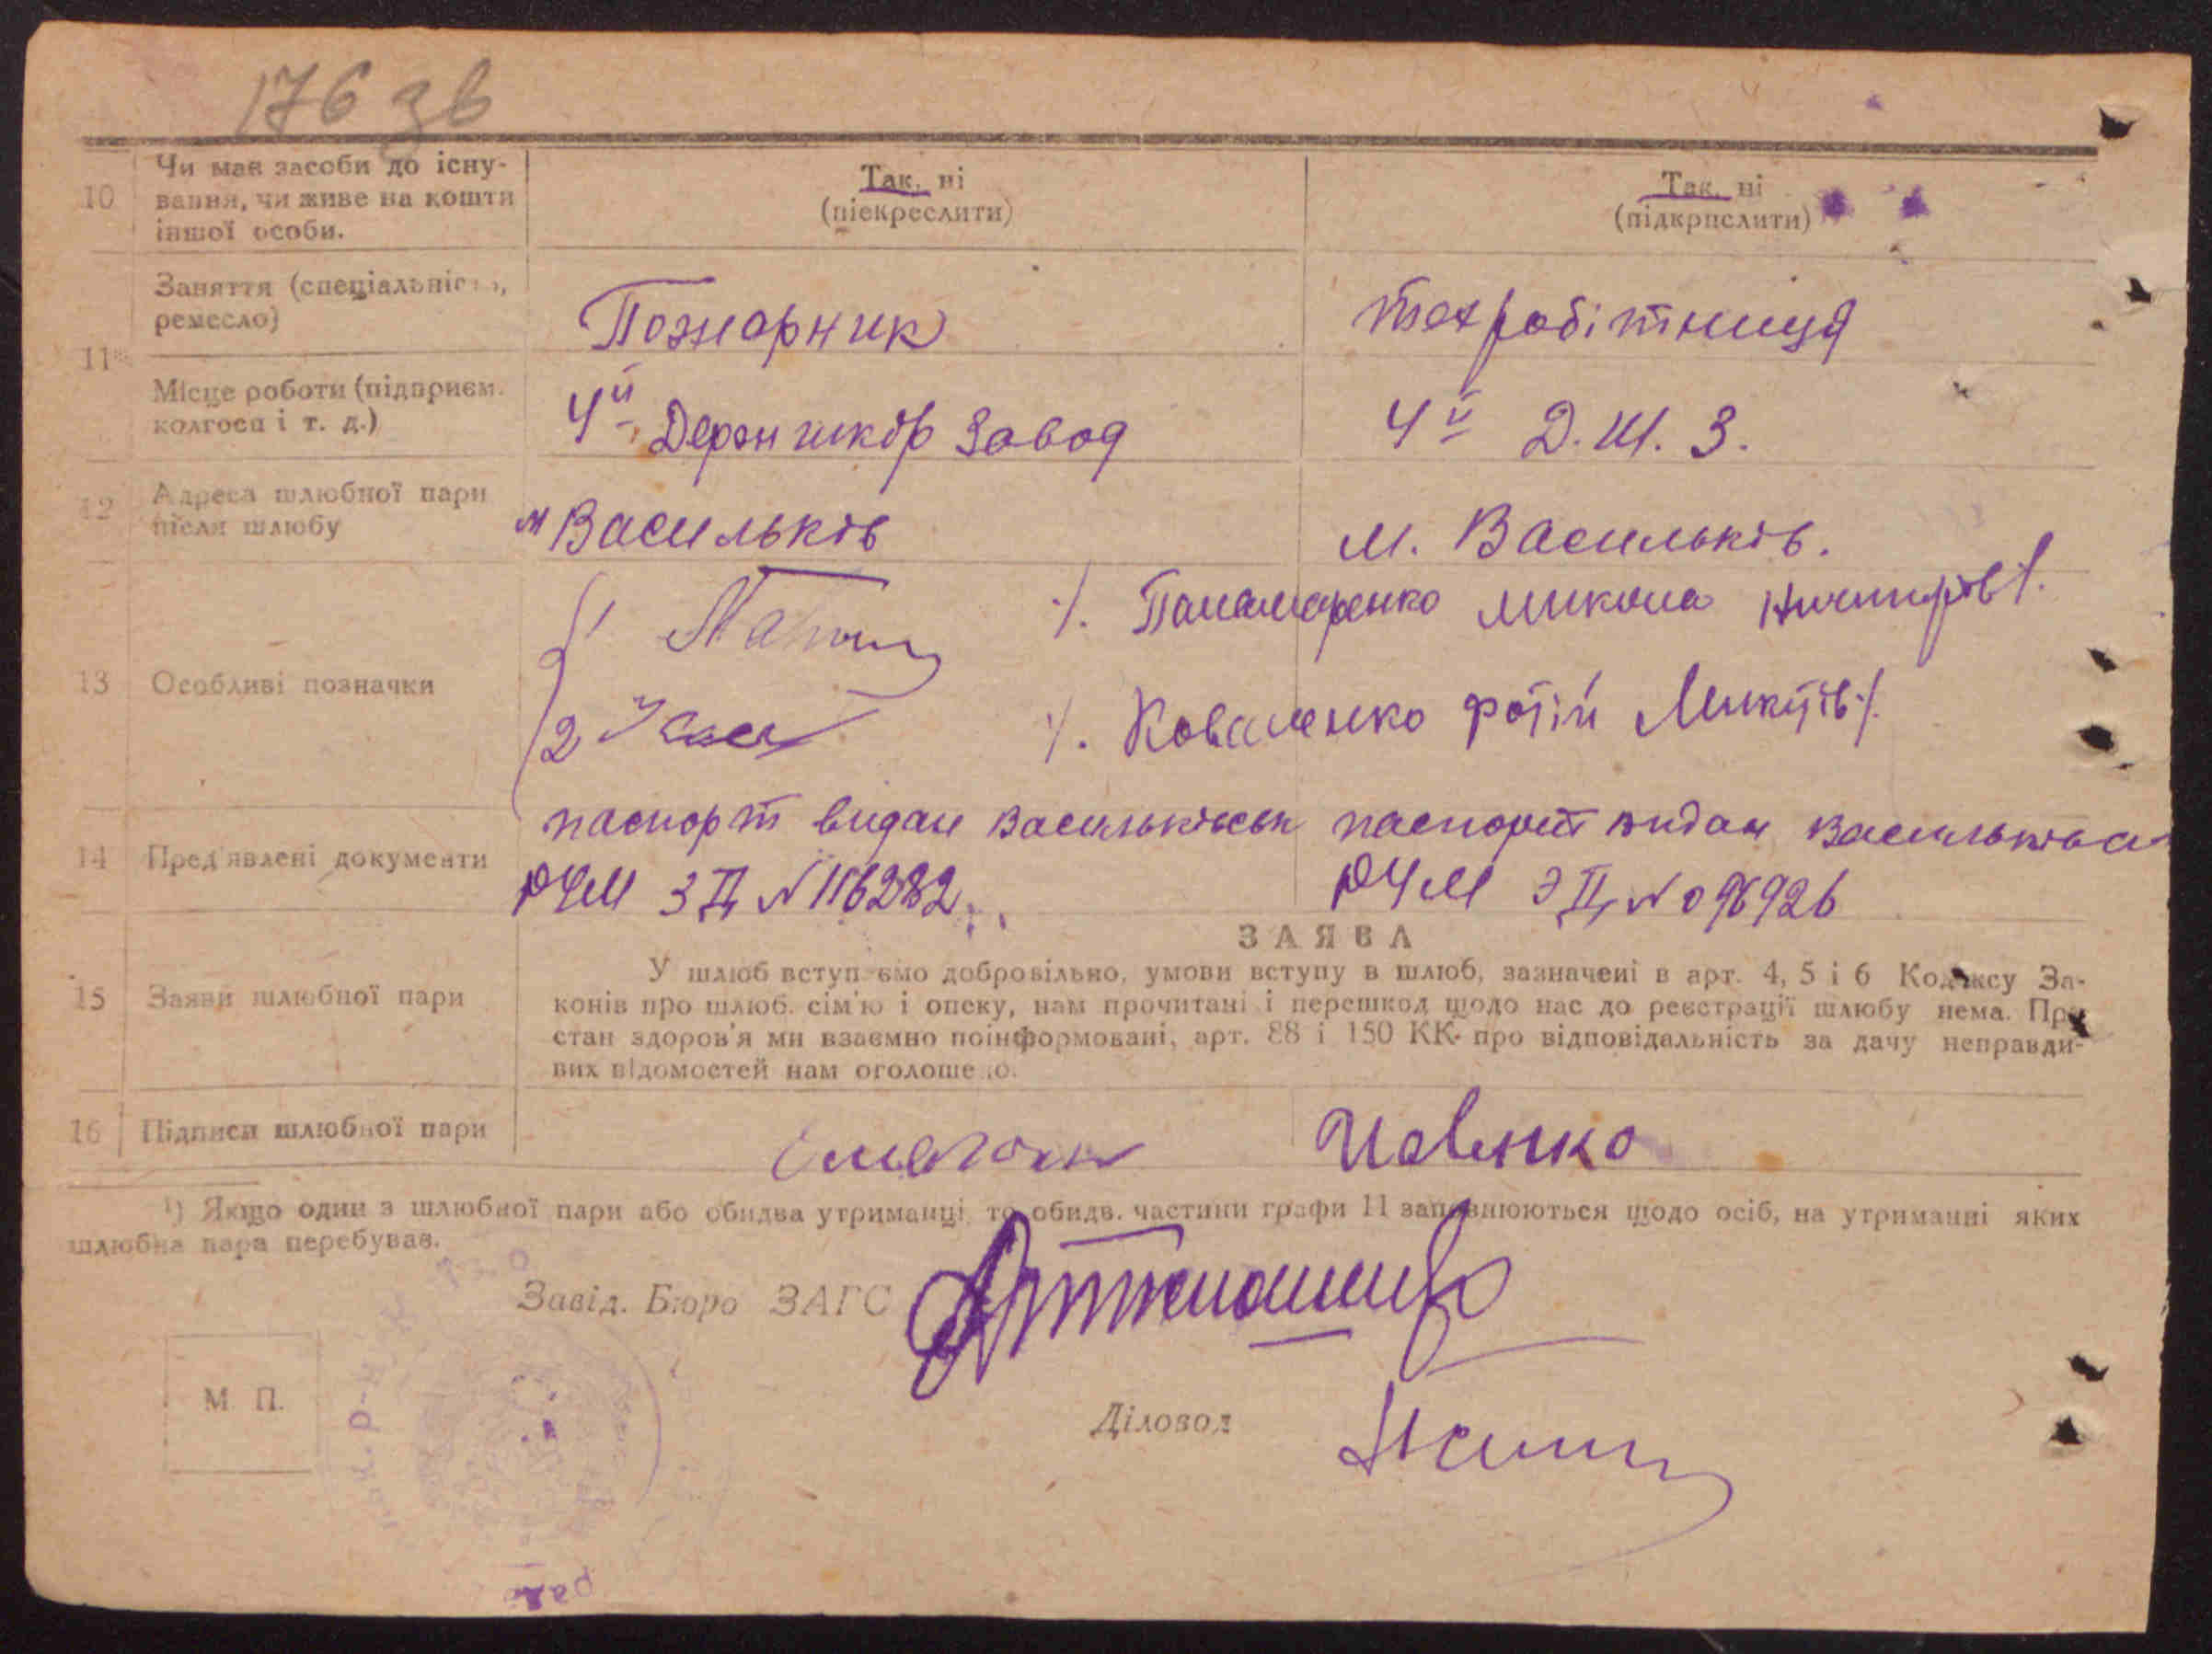 176 зв
10
Чи має засоби до існу-
вання, чи живе на кошти
іншої особи.
Так, ні
(піекреслити)
Так, ні
(підкрпслити)
11
Заняття (спеціальність,
ремесло)
Пожарник
техробітниця
Місце роботи (підприєм.
колгосп і т. д.)
4й Держ шкір завод
4й Д. Ш. З.
12
Адреса шлюбної пари
після шлюбу
м Васильків
м. Васильків.
13
Особливі позначки
1
/. Панамаренко Микола
2
/. Коваленко Фотій Микитів /.
14
Пред'явлені документи
паспорт видан Васильківськ
РУМ ЗД № 116282
паспорт видан Васильківс
РУМ № 096926
15
Заяви шлюбної пари
ЗАЯВА
У шлюб вступаємо добровільно, умови вступу в шлюб, зазначені в арт. 4, 5 і 6 Кодексу За-
конів про шлюб. сім'ю і опеку, нам прочитані і перешкод щодо нас до реєстрації шлюбу нема. Про
стан здоров'я ми взаємно поінформовані, арт. 88 і 150 КК про відповідальність за дачу неправди-
вих відомостей нам оголошено.
16
Підписи шлюбної пари
1) Якщо один з шлюбної пари або обидва утриманці, то обидв. частини графи 11 заповнюються щодо осіб, на утриманні яких
шлюбна пара перебуває.
Завід. Бюро ЗАГС
М. П.
Діловод